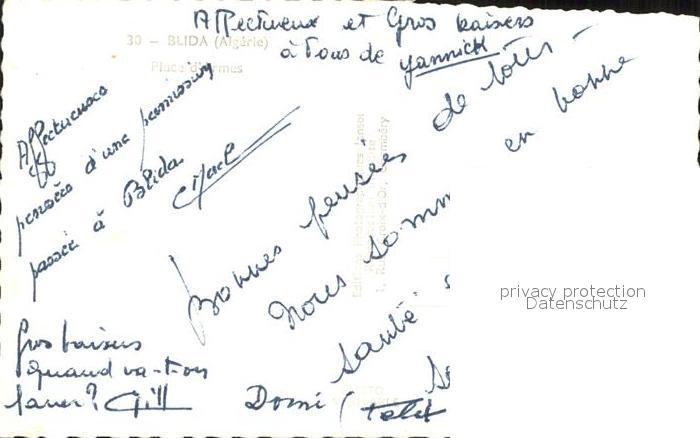 Affectueux et Gros baisers
à Tous de Yannick
30 – BLIDA (Algérie)
Place d'Armes
Affectueuses
pensées d'une permission
passée à Blida.
Bonnes pensées de tous –
Nous somm
en bonne
santé
Gros baisers
quand va-t-on
Gill
Domi (
privacy protection
Datenschutz